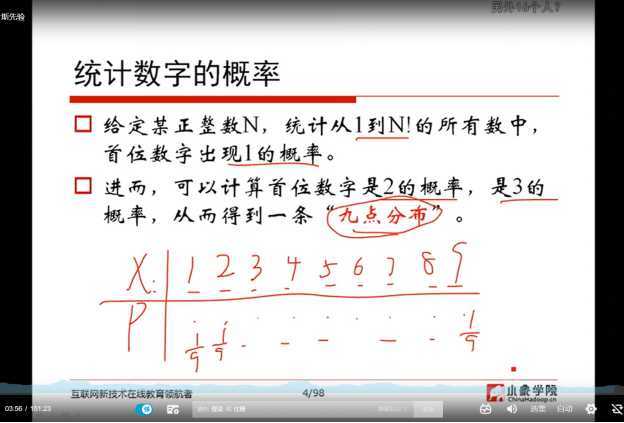 斯先验
另外16个人?
统计数字的概率
给定某正整数N，统计从1到N!的所有数中，
首位数字出现1的概率。
进而，可以计算首位数字是2的概率，是3的
概率，从而得到一条“九点分布”。
X: 1 2 3 4 5 6 7 8 9
P 1/9 1/9 1/9
互联网新技术在线教育领航者
4/98
小象学院
ChinaHadoop.cn
03:56 / 151:23
登录
注册
选集
自动